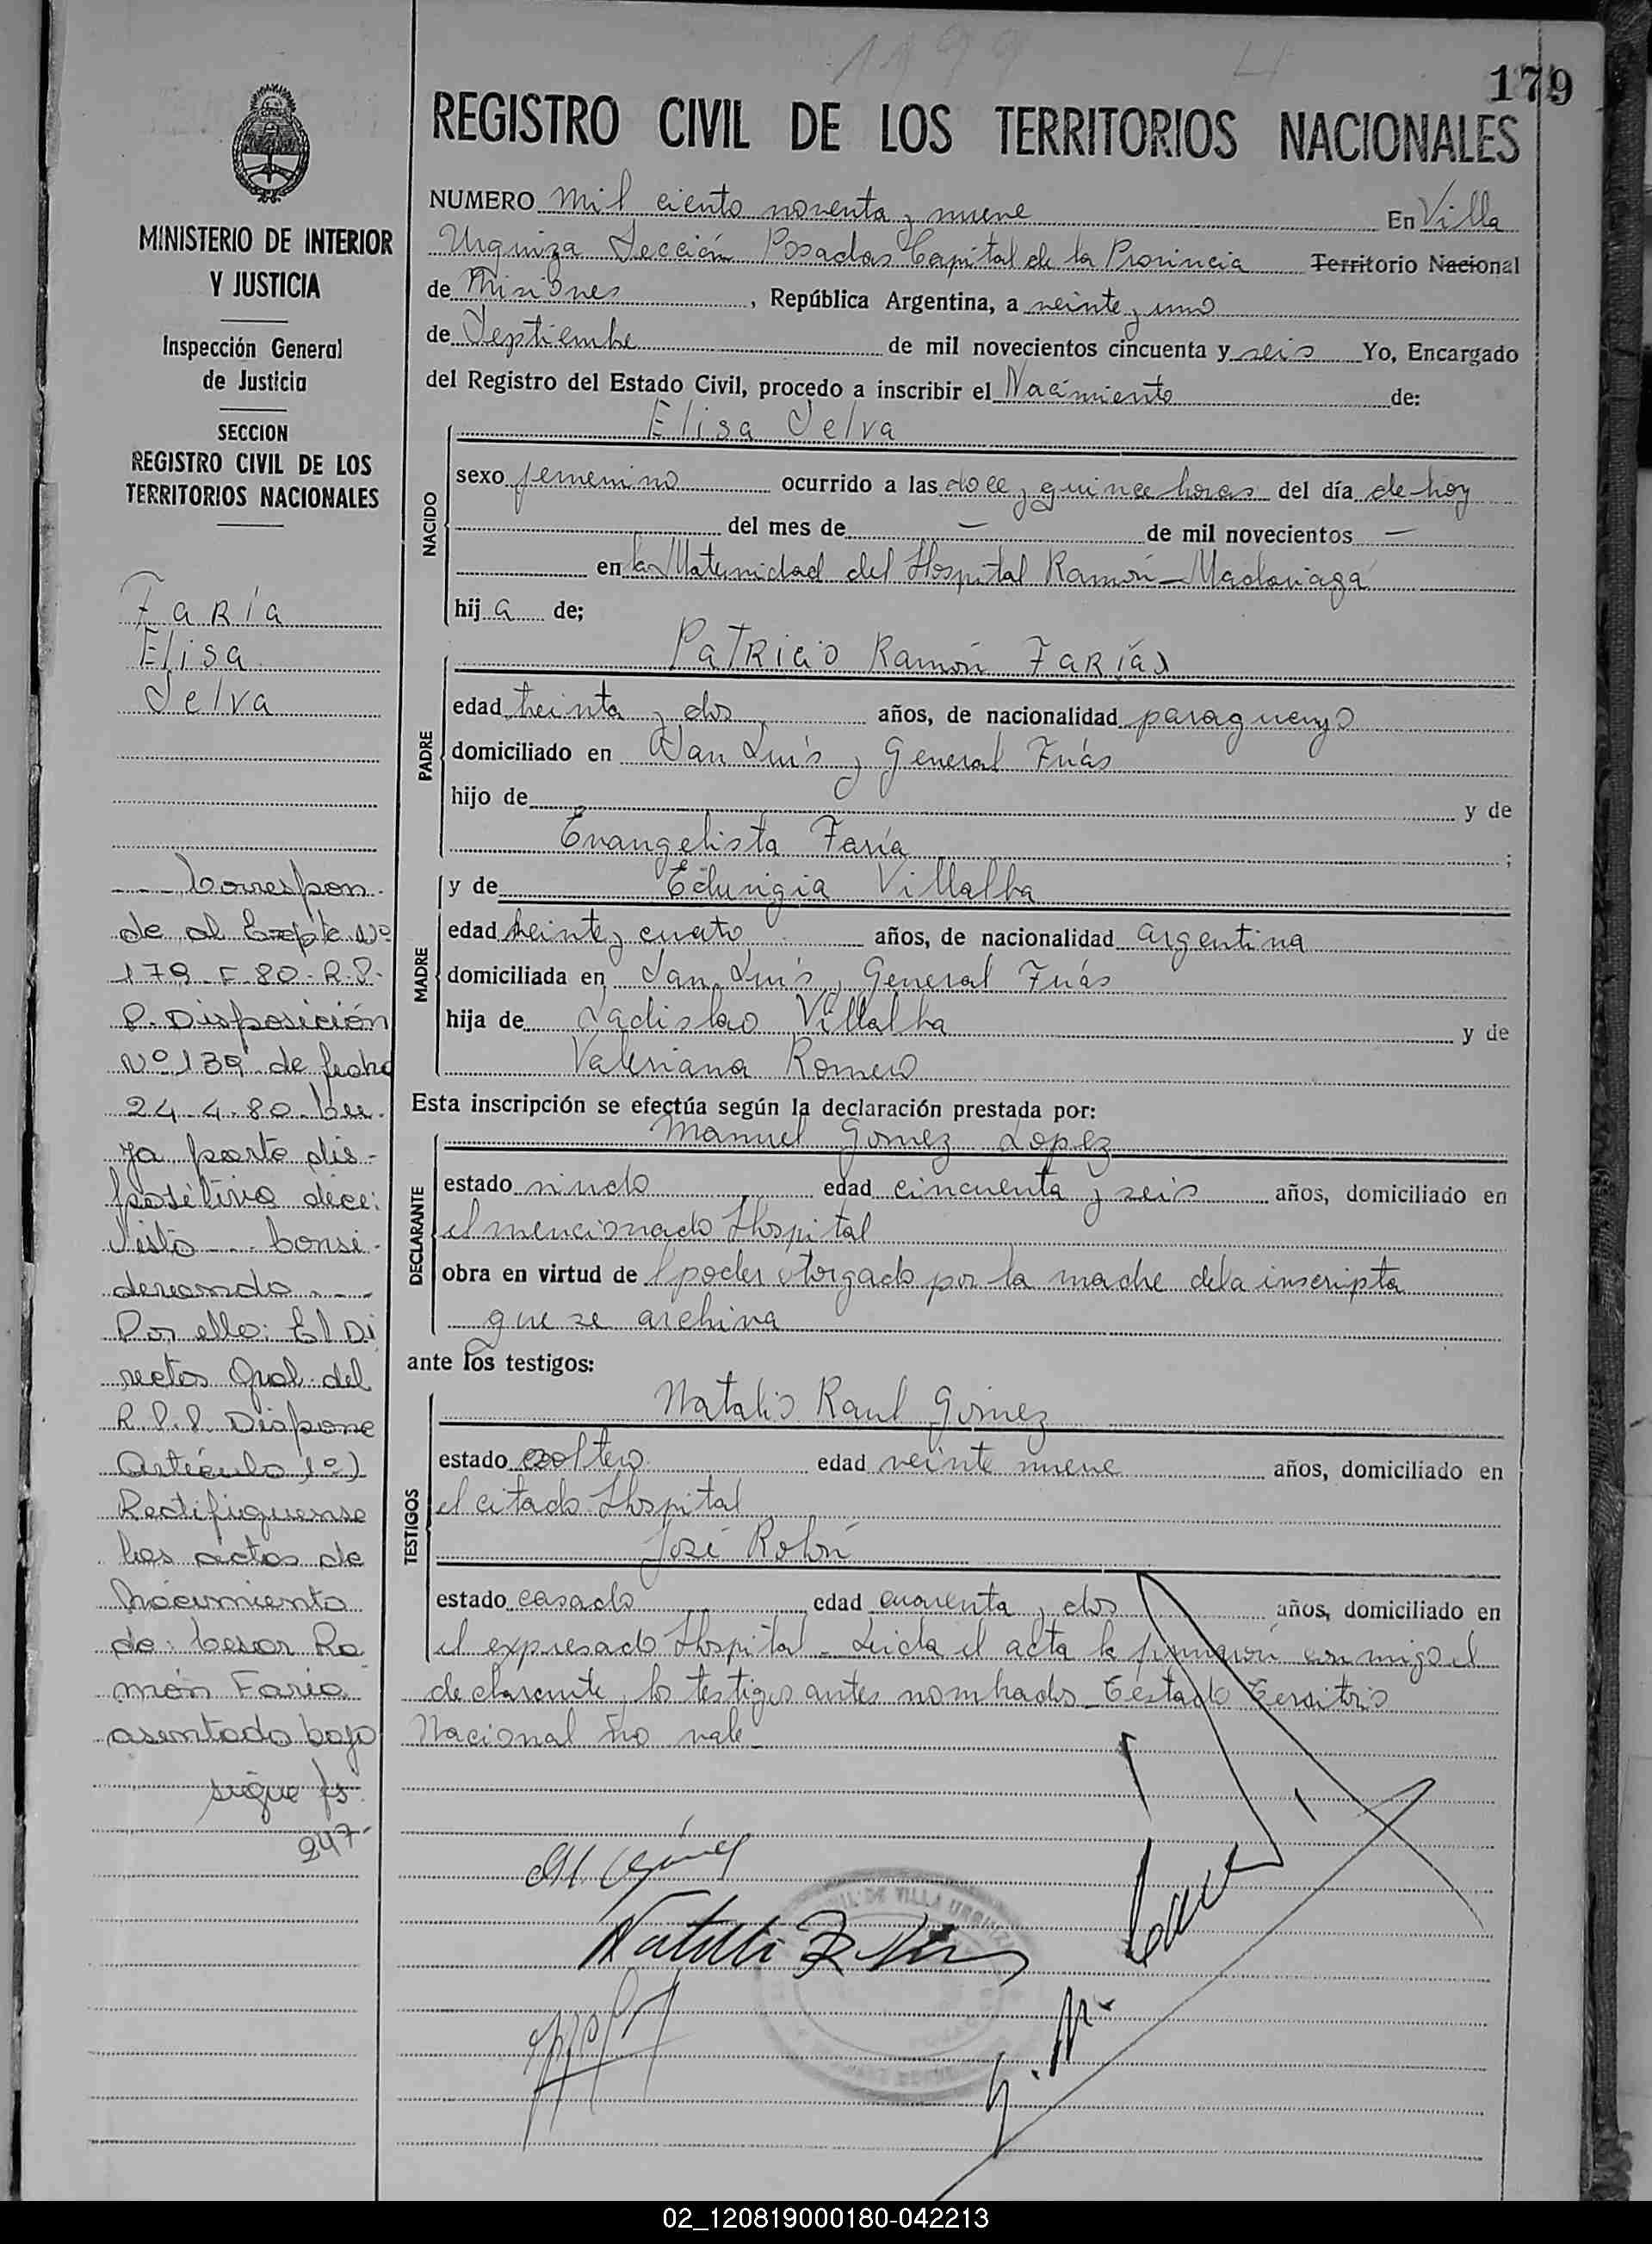 1199 4
179
REGISTRO CIVIL DE LOS TERRITORIOS NACIONALES
MINISTERIO DE INTERIOR
Y JUSTICIA
Inspección General
de Justicia
SECCION
REGISTRO CIVIL DE LOS
TERRITORIOS NACIONALES
Faría
Elisa
Selva
--- Correspon-
de al Expte Nº
179-F-80-R.P.
P. Disposición
Nº 139 de fecha
24-4-80-Cu-
ya parte dis-
positiva dice:
Visto --- Consi-
derando ---
Por ello: El Di
rector Gral. del
R.P.P. Dispone
Artículo 1º)
Rectifiquense
las actas de
Nacimiento
de: Cesar Ra
món Faria
asentado bajo
sigue fs.
247
NUMERO mil ciento noventa y nueve En Villa
Urquiza Sección Posadas Capital de la Provincia Territorio Nacional
de Misiones, República Argentina, a veinte y uno
de Septiembre de mil novecientos cincuenta y seis Yo, Encargado
del Registro del Estado Civil, procedo a inscribir el Nacimiento de:
NACIDO
Elisa Selva
sexo femenino ocurrido a las doce y quince horas del día de hoy
del mes de — de mil novecientos —
en la Maternidad del Hospital Ramón Madariaga
hija de;
PADRE
Patricio Ramón Farías
edad treinta y dos años, de nacionalidad paraguayo
domiciliado en San Luis y General Frías
hijo de y de
Evangelista Faría ;
MADRE
y de Eduvigia Villalba
edad treinta y cuatro años, de nacionalidad argentina
domiciliada en San Luis y General Frías
hija de Ladislao Villalba y de
Valeriana Romero
Esta inscripción se efectúa según la declaración prestada por:
DECLARANTE
Manuel Gomez Lopez
estado viudo edad cincuenta y seis años, domiciliado en
el mencionado Hospital
obra en virtud de l poder otorgado por la madre de la inscripta
que se archiva
ante los testigos:
TESTIGOS
Natalio Raul Gómez
estado soltero edad veinte nueve años, domiciliado en
el citado Hospital
José Rolón
estado casado edad cuarenta y dos años, domiciliado en
el expresado Hospital - Leida el acta la firmaron conmigo el
declarante y los testigos antes nombrados - Testado Territorio
Nacional no vale -
DE VILLA URQUIZA
02_120819000180-042213